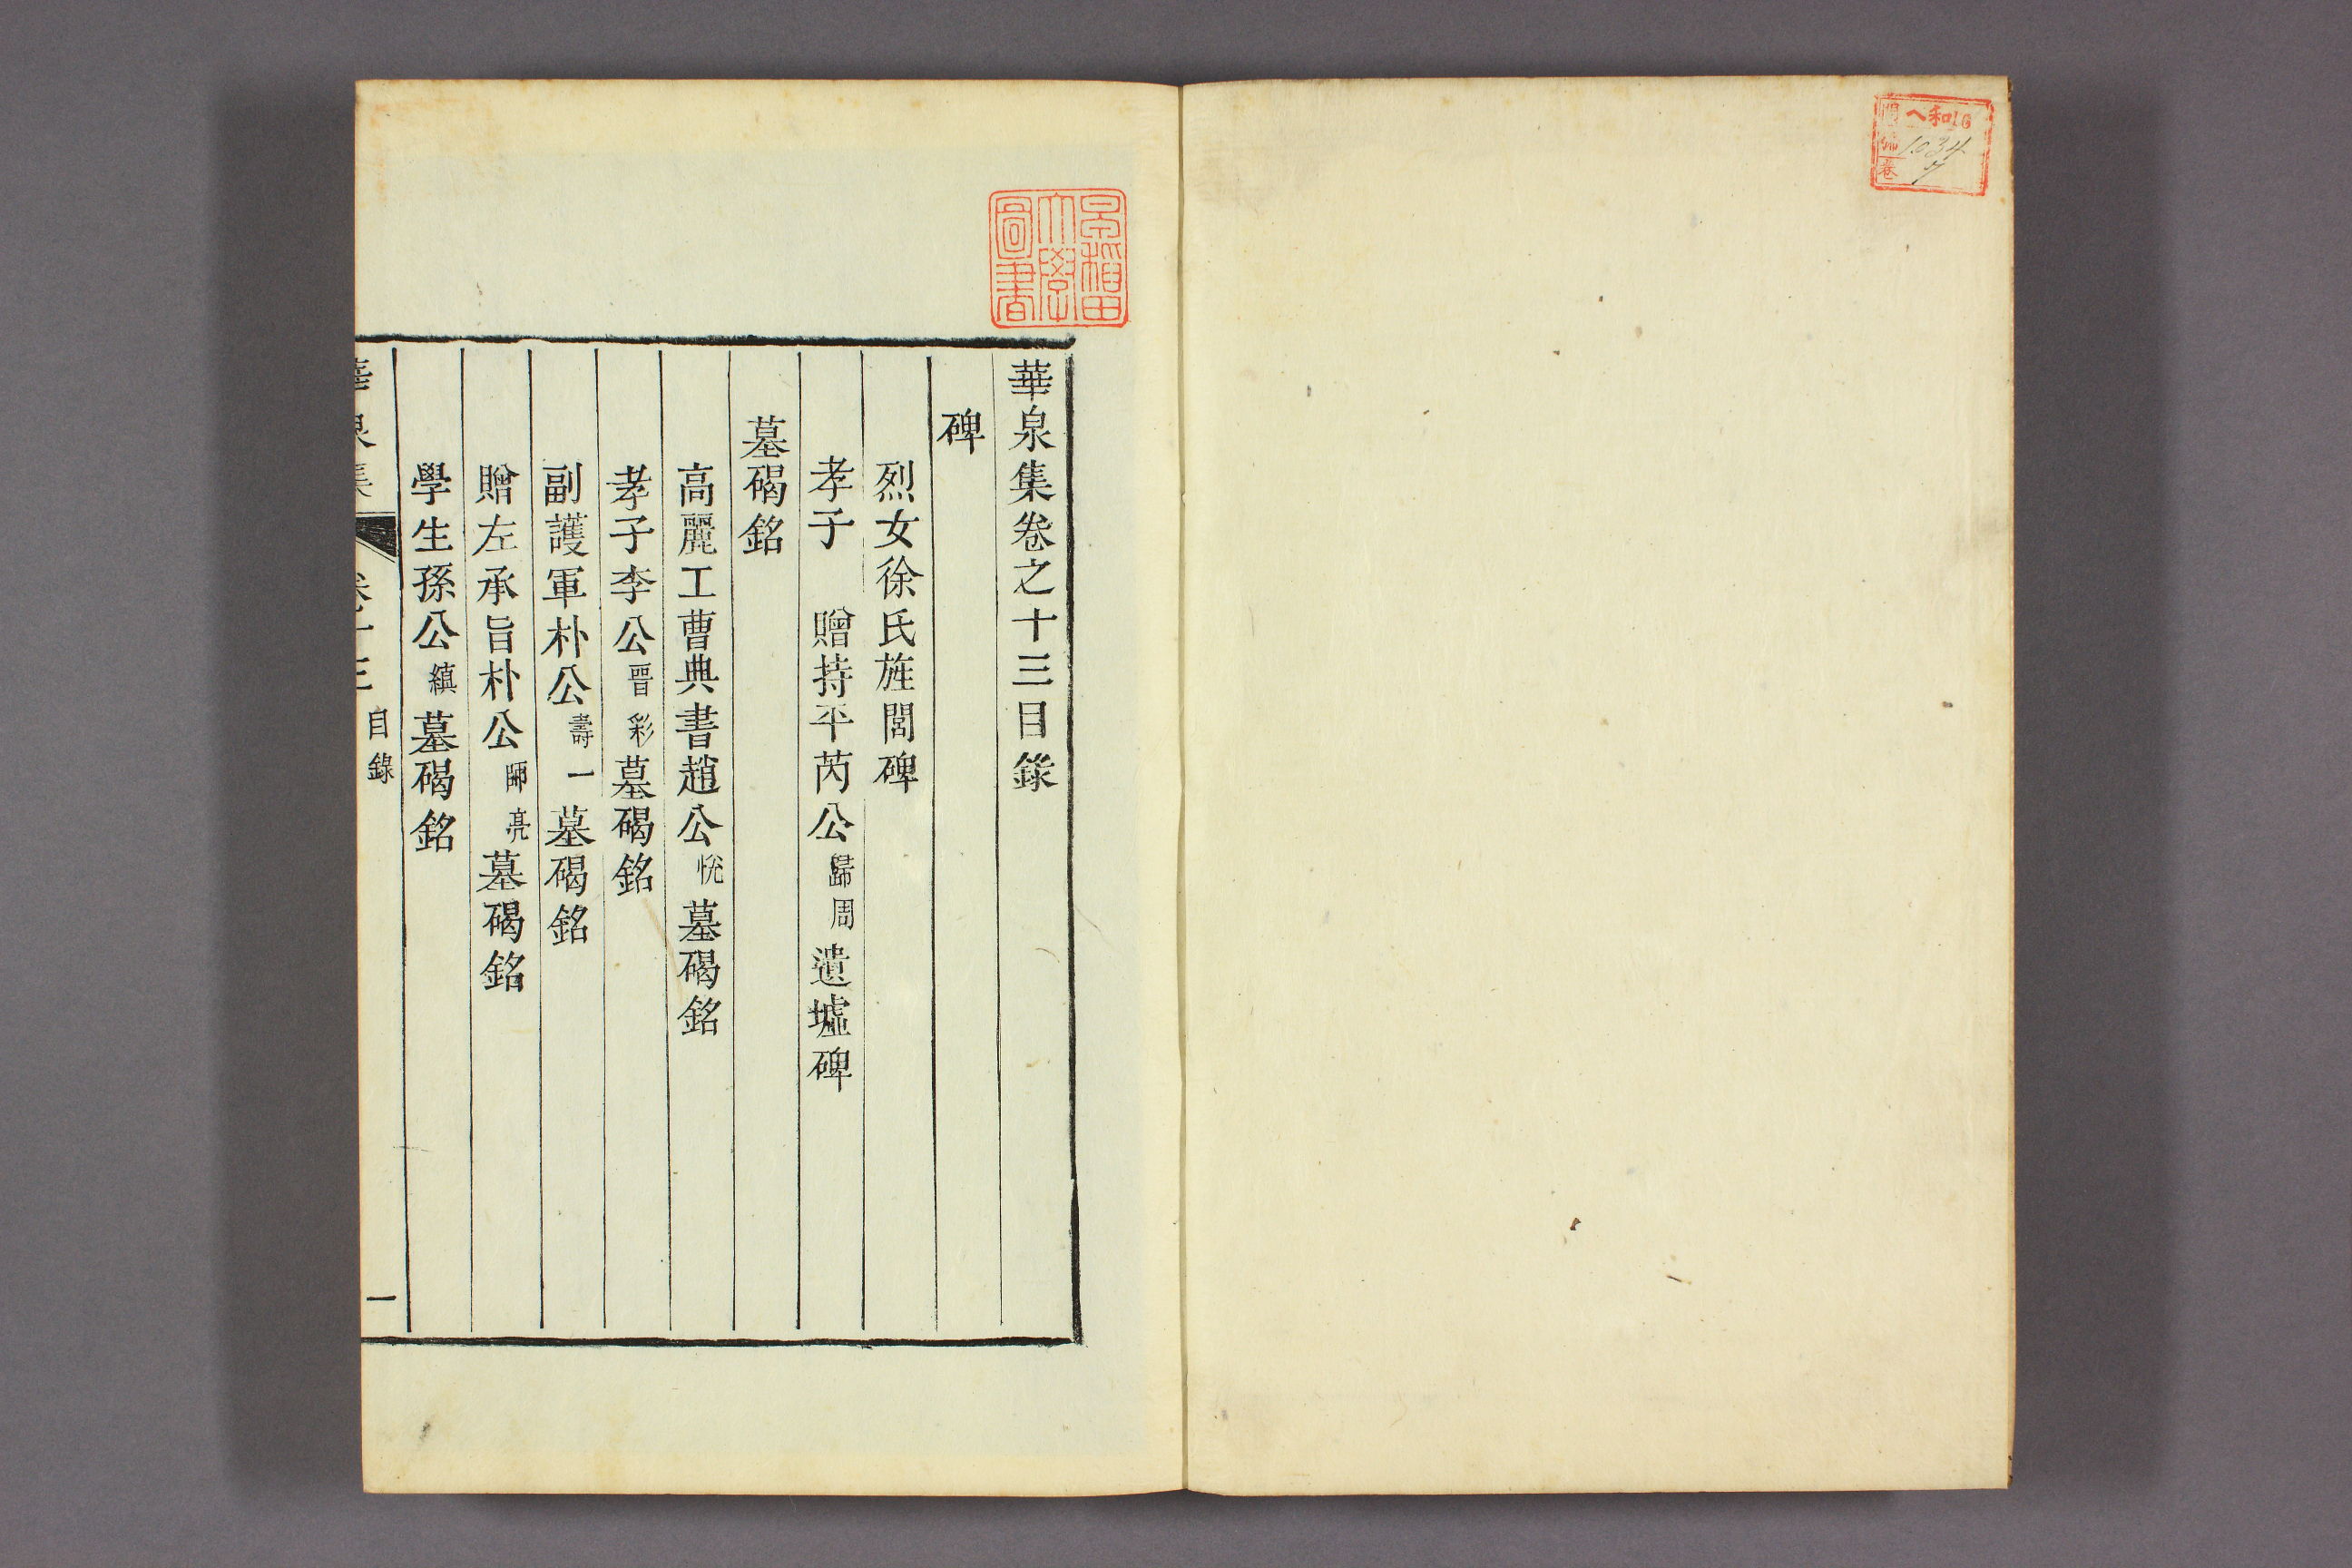 ヘ和16
1034
7
門
號
卷
早稲田
大學
圖書
華泉集卷之十三目錄
碑
烈女徐氏旌閭碑
孝子 贈持平芮公歸周遺墟碑
墓碣銘
高麗工曹典書趙公悅墓碣銘
孝子李公晋彩墓碣銘
副護軍朴公壽一墓碣銘
贈左承旨朴公師亮墓碣銘
學生孫公縝墓碣銘
華泉集 卷十三 目錄 一